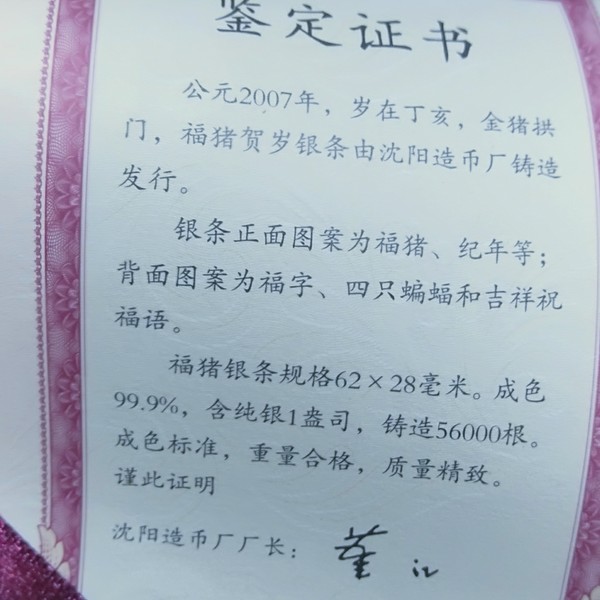 鉴定证书
公元2007年，岁在丁亥，金猪拱
门，福猪贺岁银条由沈阳造币厂铸造
发行。
银条正面图案为福猪、纪年等；
背面图案为福字、四只蝙蝠和吉祥祝
福语。
福猪银条规格62×28毫米。成色
99.9%，含纯银1盎司，铸造56000根。
成色标准，重量合格，质量精致。
谨此证明
沈阳造币厂厂长：